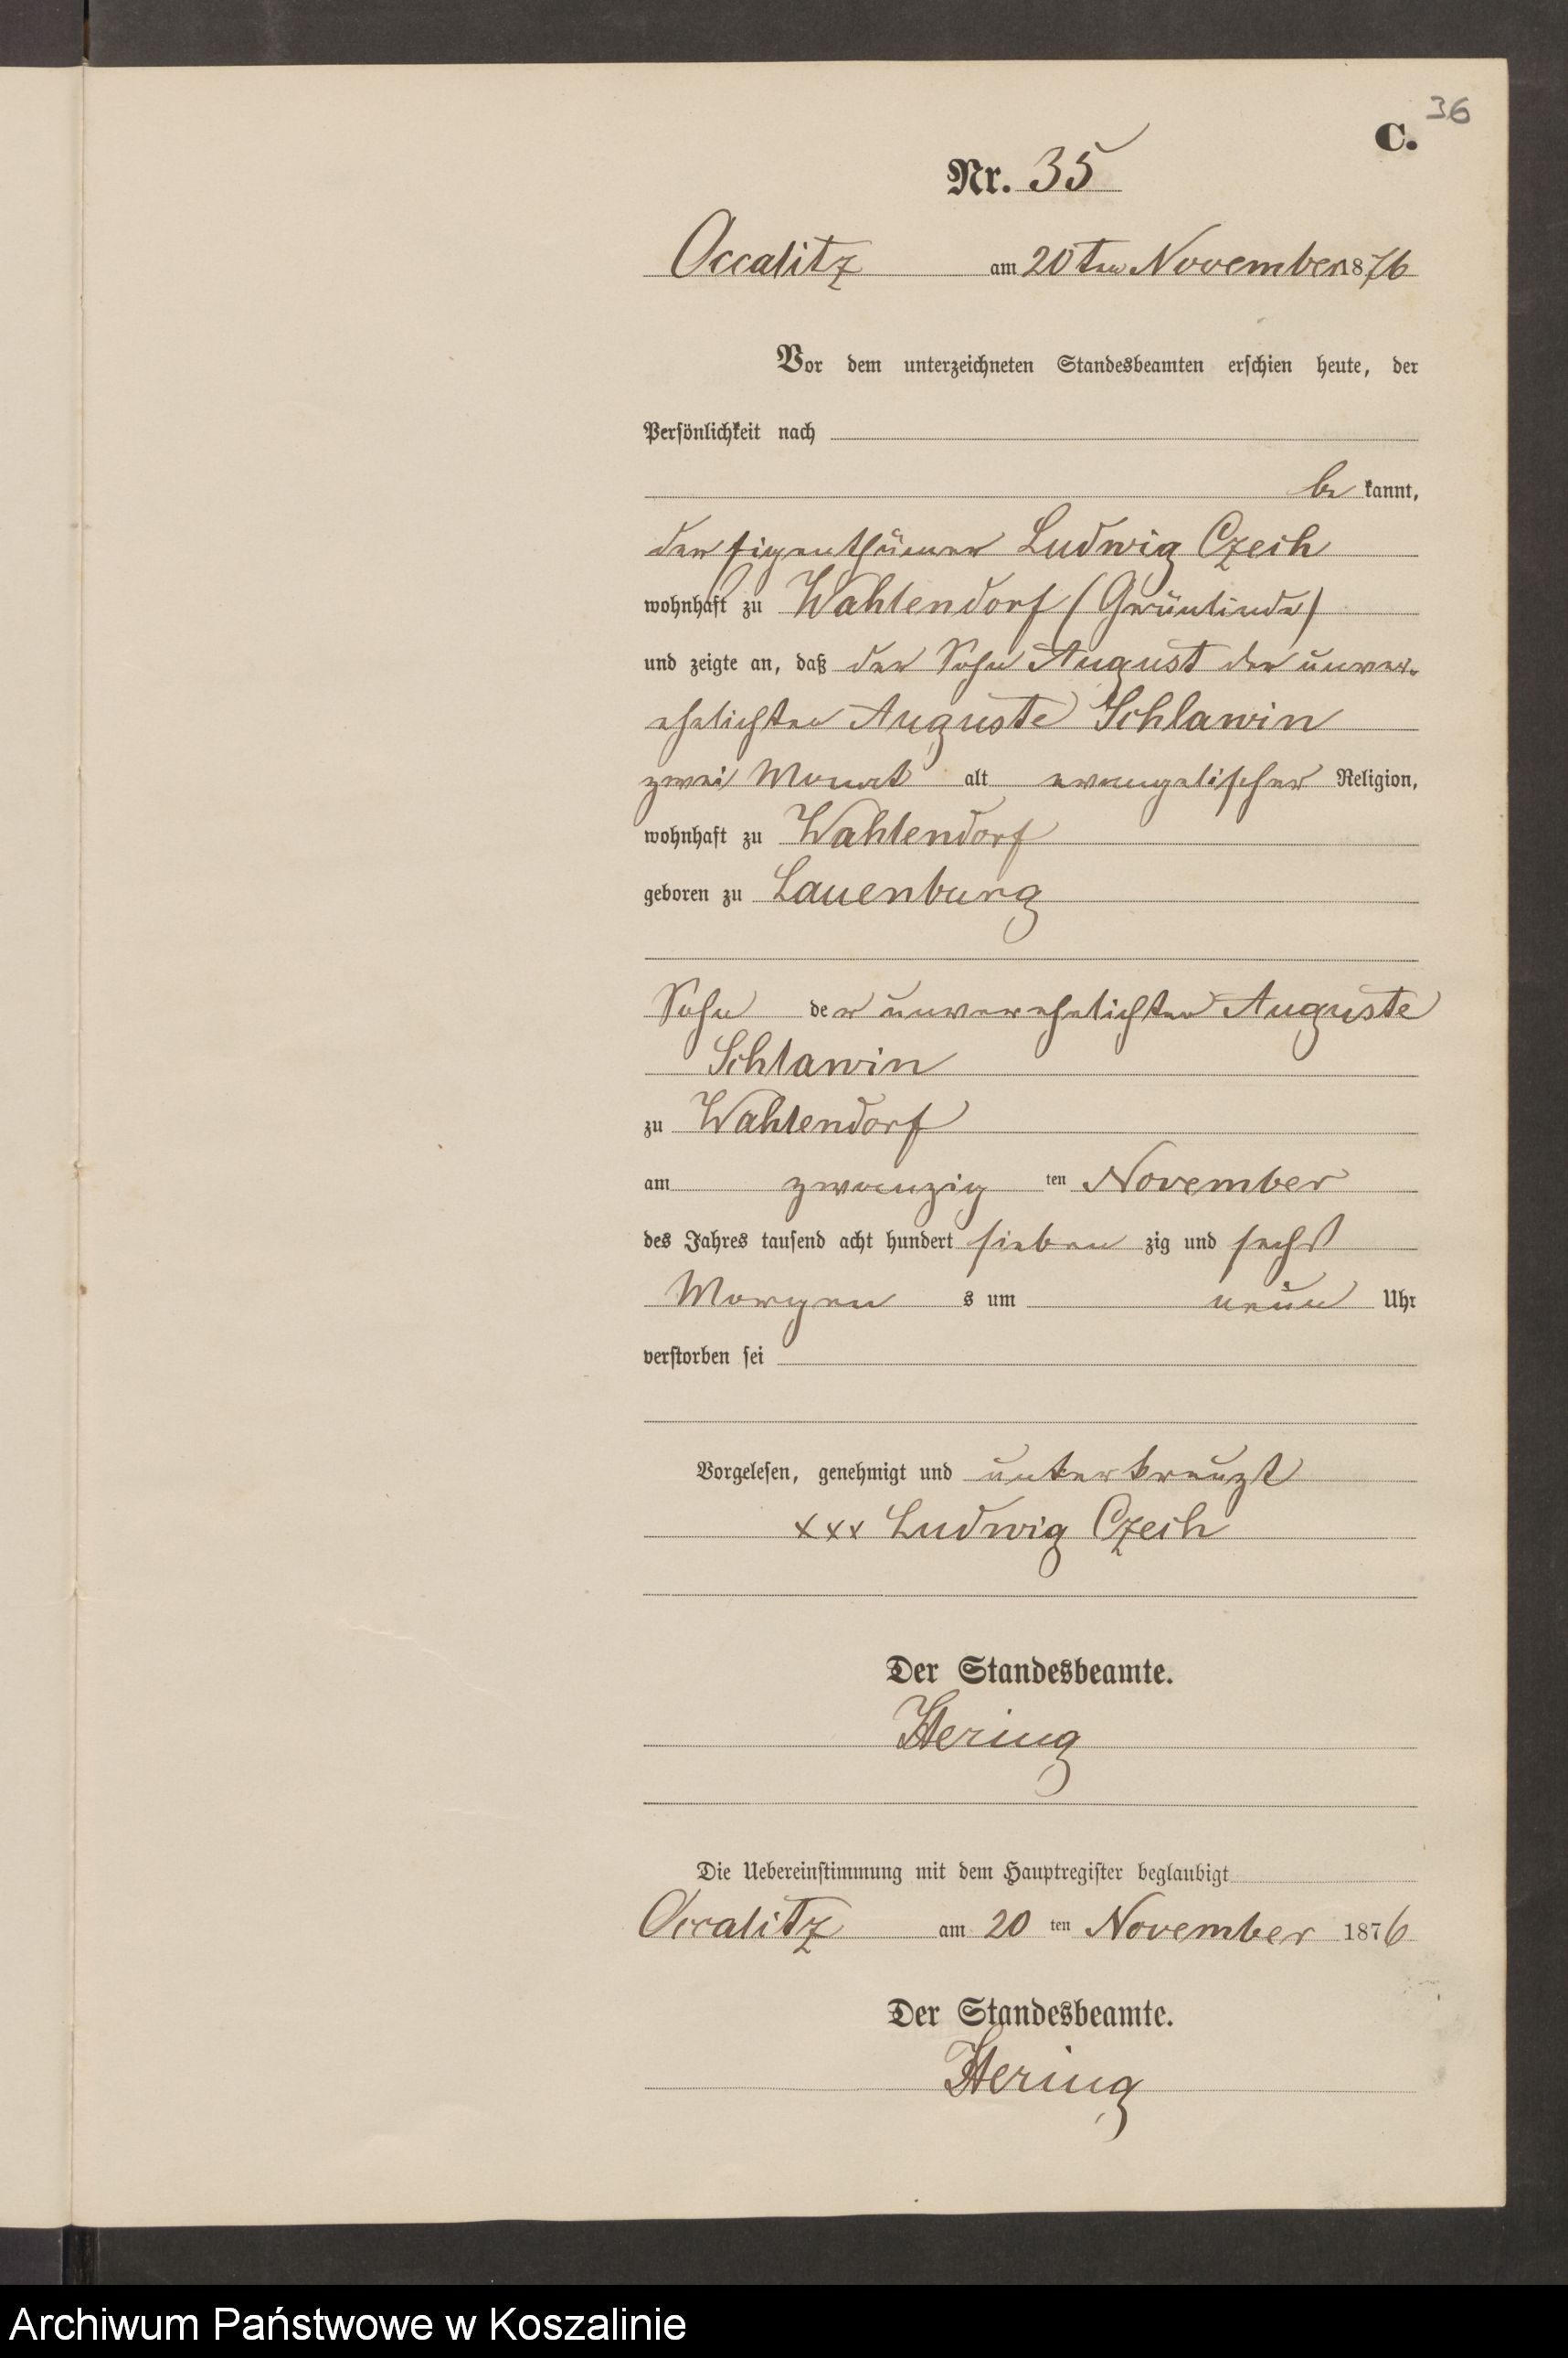 36
C.
Nr. 35
Occalitz am 20ten November 1876
Vor dem unterzeichneten Standesbeamten erschien heute, der
Persönlichkeit nach
be kannt,
der Eigenthümer Ludwig Czech
wohnhaft zu Wahlendorf (Grünlinde)
und zeigte an, daß der Sohn August der unver-
ehelichten Auguste Schlawin
zwei Monat alt evangelischer Religion,
wohnhaft zu Wahlendorf
geboren zu Lauenburg
Sohn der unverehelichten Auguste
Schlawin
zu Wahlendorf
am zwanzig ten November
des Jahres tausend acht hundert sieben zig und sechs
Morgen s um neun Uhr
verstorben sei
Vorgelesen, genehmigt und unterkreuzt
xxx Ludwig Czech
Der Standesbeamte.
Hering
Die Uebereinstimmung mit dem Hauptregister beglaubigt
Occalitz am 20 ten November 1876
Der Standesbeamte.
Hering
Archiwum Państwowe w Koszalinie